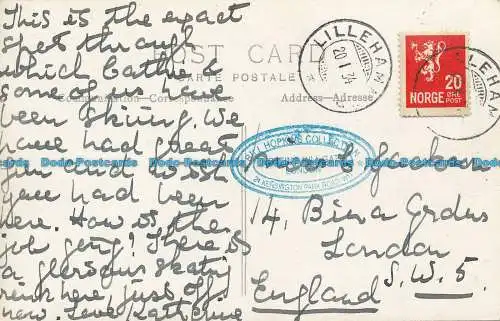 This is the exact
spot through
which Cathie &
some of us have
been skiing. We
have had great
fun and wish
you had been
here. How is the
job going? There is
a glorious skating
rink here, just off
now. Love Katherine
POST CARD
CARTE POSTALE
Communication-Correspondance
Address-Adresse
LILLEHAM
20 1 34
LLEHAM
20
NORGE ØRE POST
HOPKINS COLLECT
LONDON
24 KENSINGTON PARK ROAD W11
Jackson
14, Bina Gdns
London
S.W.5.
England
Dodo-Postcards Dodo-Postcards Dodo-Postcards Dodo-Postcards